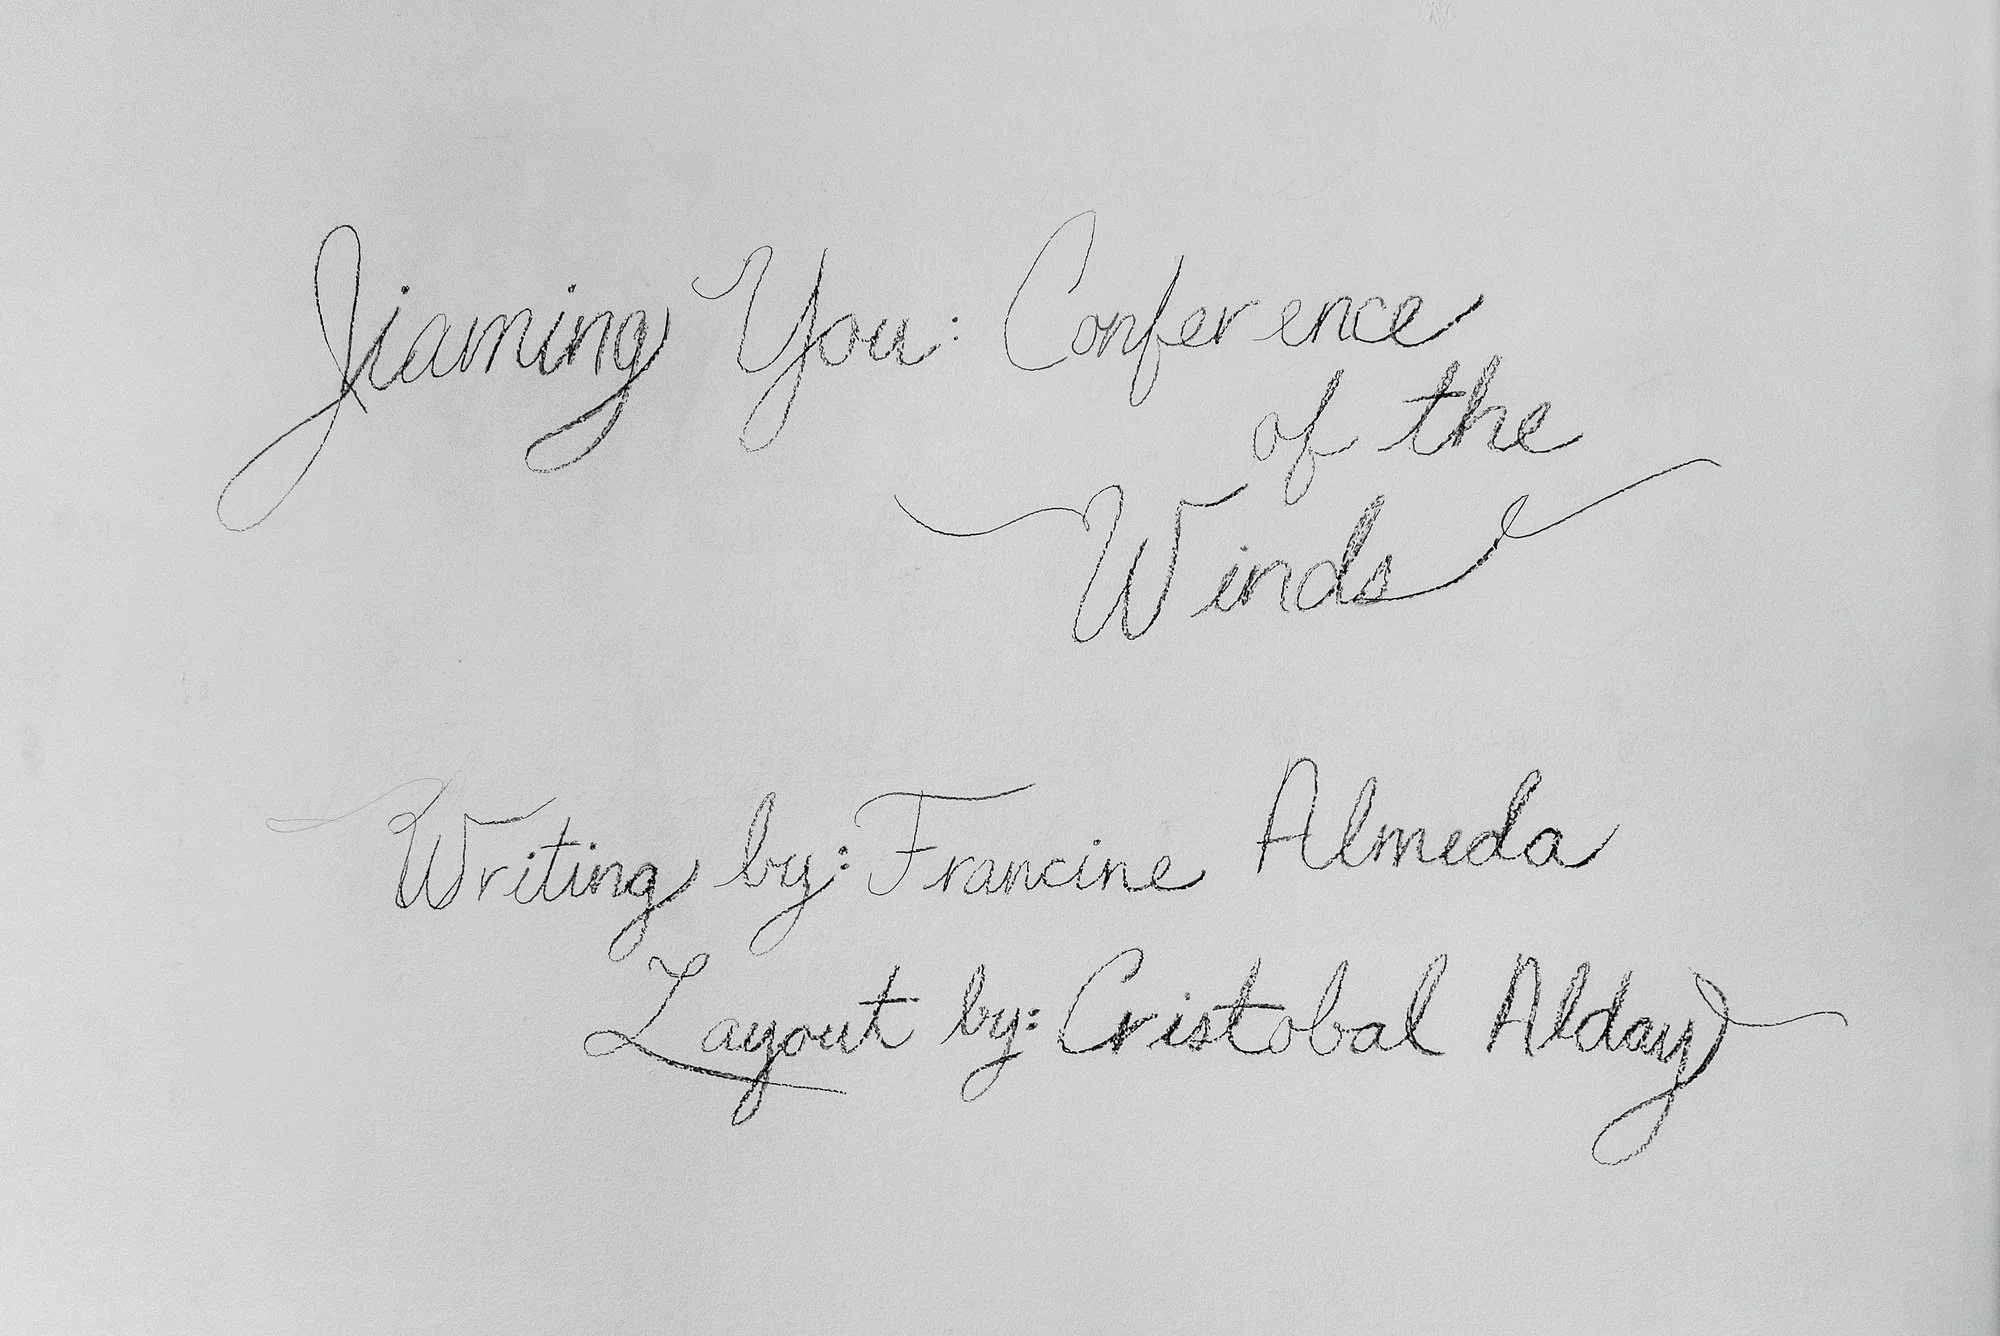 Jiaming You: Conference
of the
Winds
Writing by: Francine Almeda
Layout by: Cristobal Alday